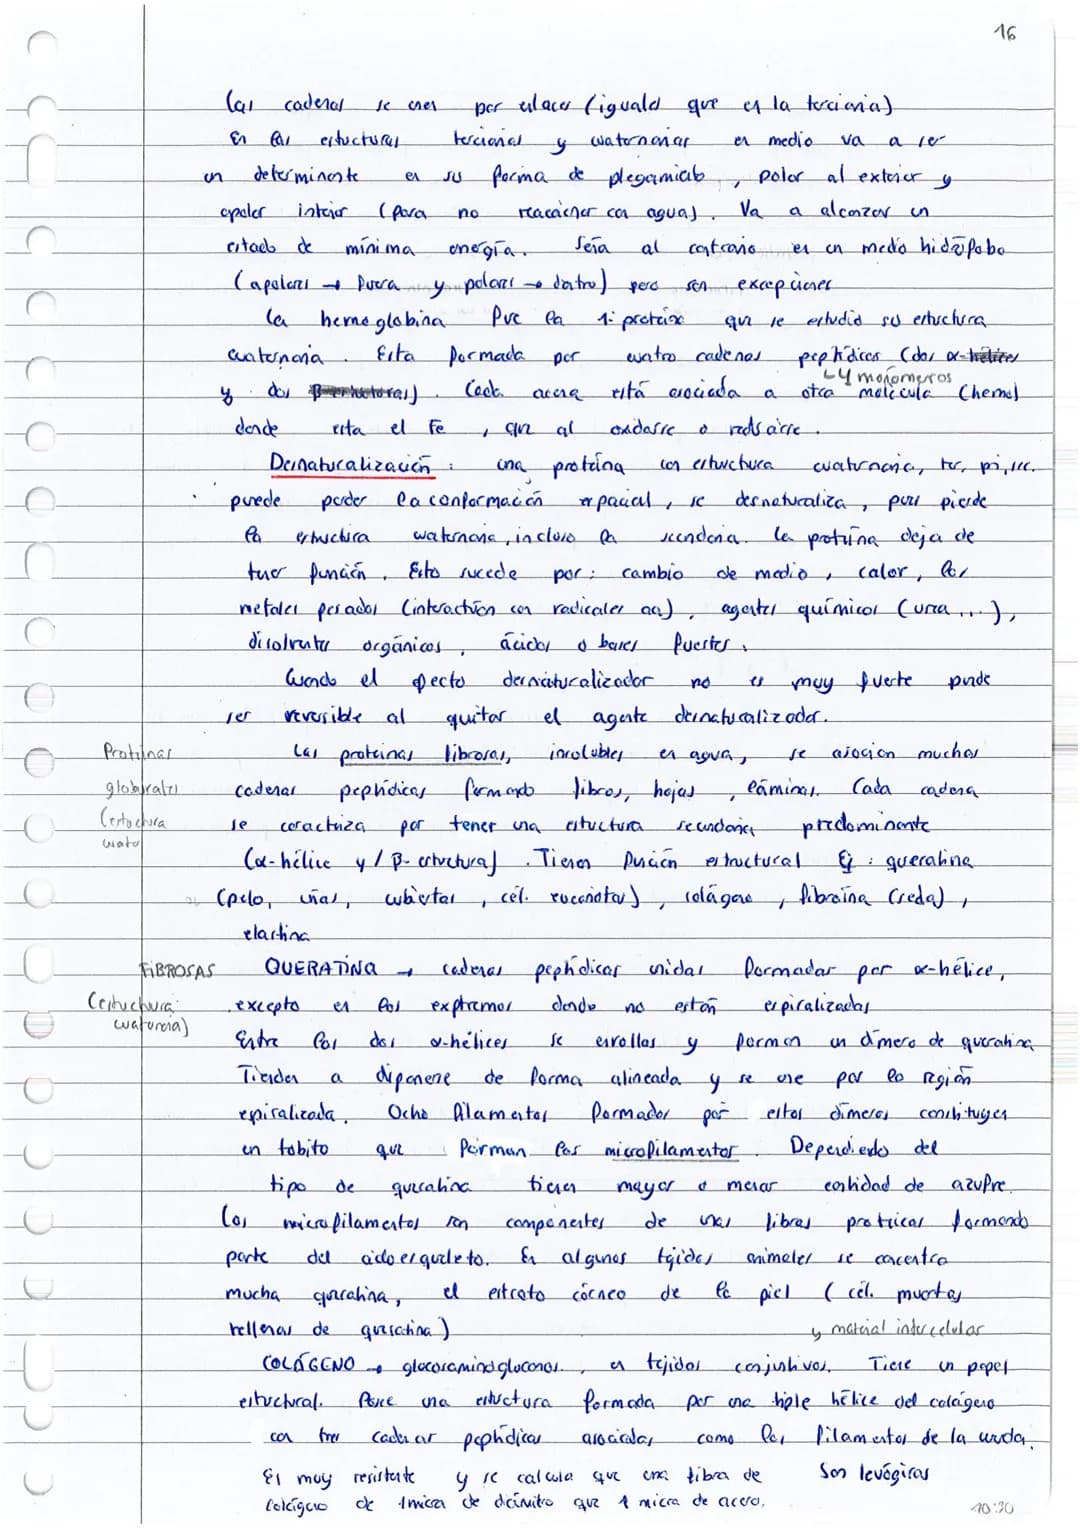 16
Las cadenas se unen por enlaces (iguales que en la terciaria)
En las estructuras terciarias y cuaternarias el medio va a ser
un determinante en su forma de plegamiento, polar al exterior y
apolar interior (para no reaccionar con agua). Va a alcanzar un
estado de mínima energía. Sería al contrario en un medio hidrófobo
(apolares → fuera y polares → dentro) pero son excepciones
La hemoglobina fue la 1ª proteína que se estudió su estructura
cuaternaria. Esta formada por cuatro cadenas peptídicas (dos α-hélices
↳4 monómeros
y dos β-estructuras). Cada una está asociada a otra molécula (hemo)
donde esta el Fe, que al oxidarse o reducirse.
Desnaturalización: una proteína con estructura cuaternaria, ter, pri, sec.
puede perder la conformación espacial, se desnaturaliza, pues pierde
la estructura cuaternaria, incluso la secundaria. La proteína deja de
tener función. Esto sucede por: cambio de medio, calor, los
metales pesados (interactúan con radicales aa), agentes químicos (urea...),
disolventes orgánicos, ácidos o bases fuertes.
Cuando el efecto desnaturalizador no es muy fuerte puede
ser reversible al quitar el agente desnaturalizador.
Proteinas
globulares
(estructura
cuater
Las proteinas fibrosas, insolubles en agua, se asocian muchas
cadenas peptídicas formando fibras, hojas, láminas. Cada cadena
se caracteriza por tener una estructura secundaria predominante
(α-hélice y/ β-estructura). Tienen función estructural Ej: queratina
(pelo, uñas, cubiertas, cél. eucariotas), colágeno, fibroína (seda),
elastina
FIBROSAS
(estructura
cuaternaria)
QUERATINA → cadenas peptídicas unidas formadas por α-hélice,
excepto en los extremos donde no están espiralizadas
Entre las dos α-hélices se enrollan y forman un dímero de queratina
Tienden a disponerse de forma alineada y se une por la región
espiralizada. Ocho filamentos formados por estos dímeros constituyen
un tubito que forman los microfilamentos. Dependiendo del
tipo de queratina tienen mayor o menor cantidad de azufre.
Los microfilamentos son componentes de unas fibras proteicas formando
parte del citoesqueleto. En algunos tejidos animales se concentra
mucha queratina, el estrato córneo de la piel (cél. muertas
rellenas de queratina)
y material intercelular
COLÁGENO → glucosaminoglucanos., en tejidos conjuntivos. Tiene un papel
estructural. Posee una estructura formada por una triple hélice del colágeno
con tres cadenas peptídicas asociadas como los filamentos de la cuerda.
Es muy resistente y se calcula que una fibra de Son levógiras
colágeno de 1 micra de diámitro que 1 micra de acero.
10:30